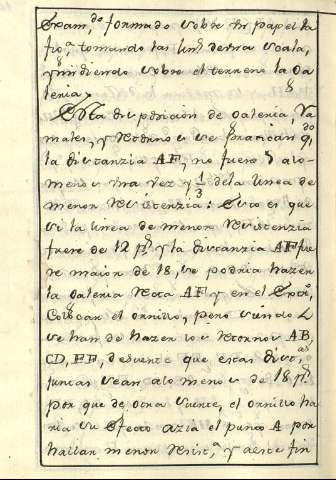 Exam,do formado sobre un papel la
fig,a tomando las lin,s desva Scala,
y midiendo sobre el terreno la Ga
leria.
Esta disposicion de Galeria, Ra
males, y Retornos se practican q,do
la distanzia AF, no fuere alo
menos una vez y 1/3 dela linea de
menor Resistenzia: Esto es que
si la linea de menor Resistenzia
fuere de 12 p,s y la distanzia AF fue
re maior de 18, se podria hazer
la Galeria Recta AF y en el
Colocar el ornillo, pero siendo
se han de hazer los Retornos AB,
CD, EF, de suerte que estas dist,as
juntas sean alo menos de 18 p,s
por que de otra suerte, el ornillo ha
ria su efecto azia el punto A por
hallar menor Resist,a y a este fin